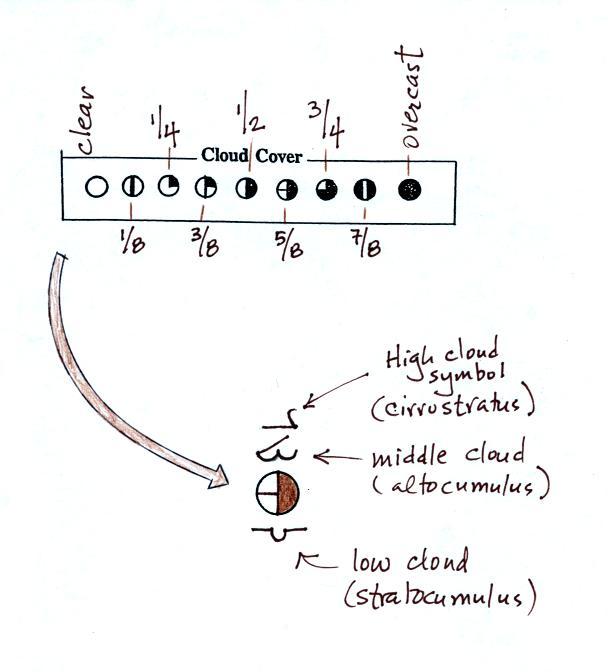 clear
1/4
1/2
3/4
overcast
Cloud Cover
1/8
3/8
5/8
7/8
High cloud
symbol
(cirrostratus)
middle cloud
(altocumulus)
low cloud
(stratocumulus)